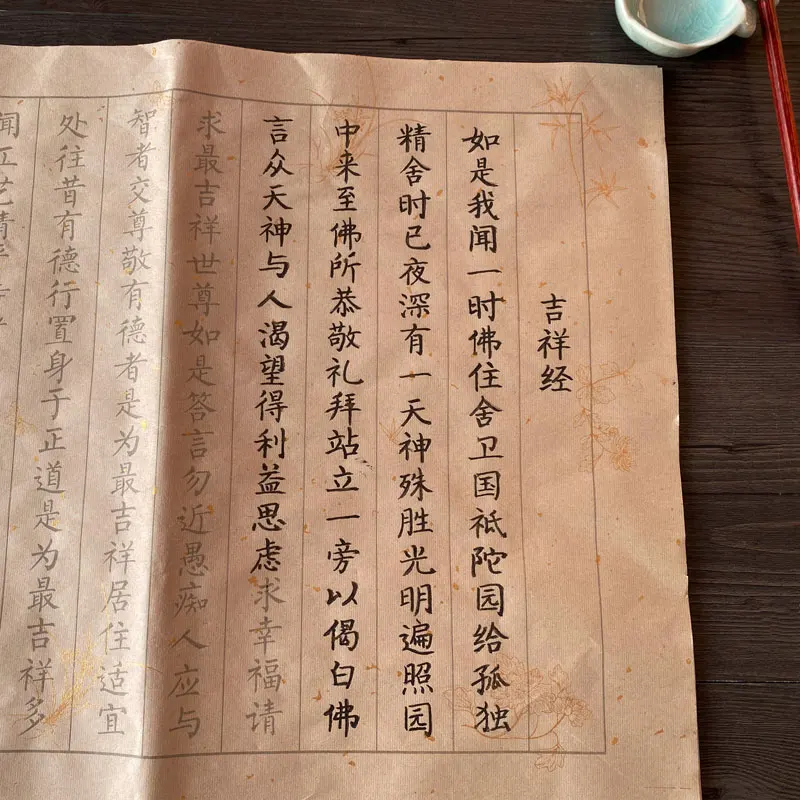 吉祥经
如是我闻一时佛住舍卫国祇陀园给孤独
精舍时已夜深有一天神殊胜光明遍照园
中来至佛所恭敬礼拜站立一旁以偈白佛
言众天神与人渴望得利益思虑求幸福请
求最吉祥世尊如是答言勿近愚痴人应与
智者交尊敬有德者是为最吉祥居住适宜
处往昔有德行置身于正道是为最吉祥多
闻工艺精